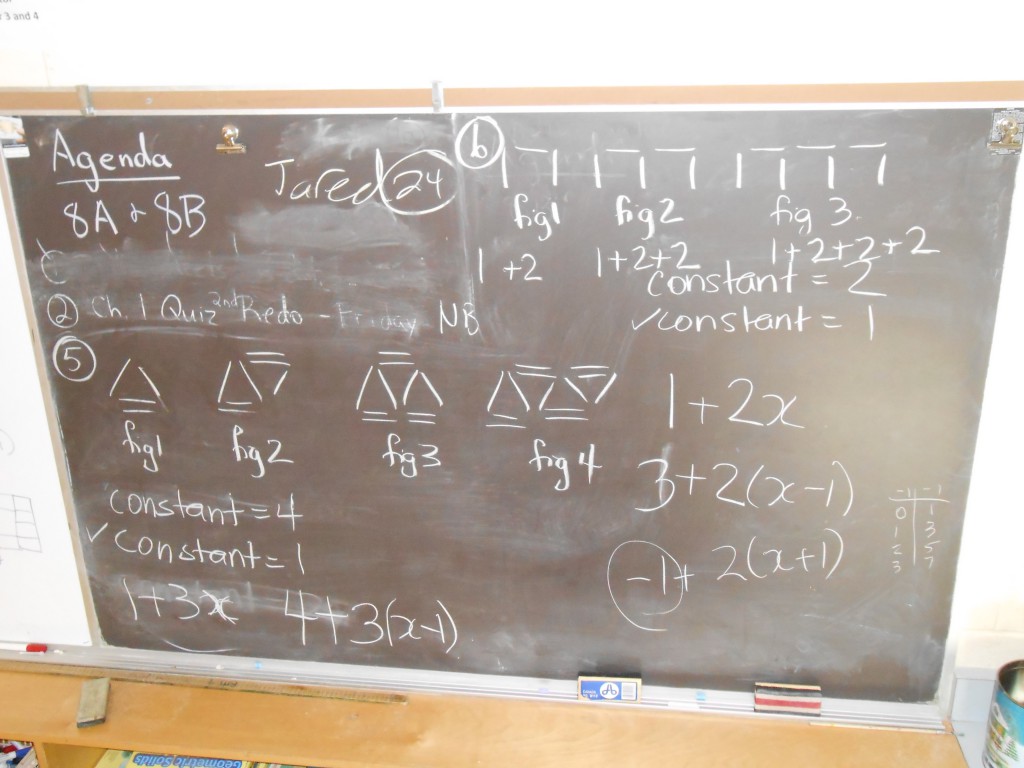 3 and 4
Agenda
8A & 8B
Jared 24
② Ch. 1 Quiz 2nd Redo - Friday NB
⑤
fig1 fig2 fig3 fig4
constant = 4
✓constant = 1
1+3x 4+3(x-1)
⑥
fig1 fig2 fig 3.
1+2 1+2+2 1+2+2+2
constant = 2
✓constant = 1
1+2x
3+2(x-1)
-1+ 2(x+1)
-1 -1
0 1
1 3
2 5
3 7
Geometric Solids